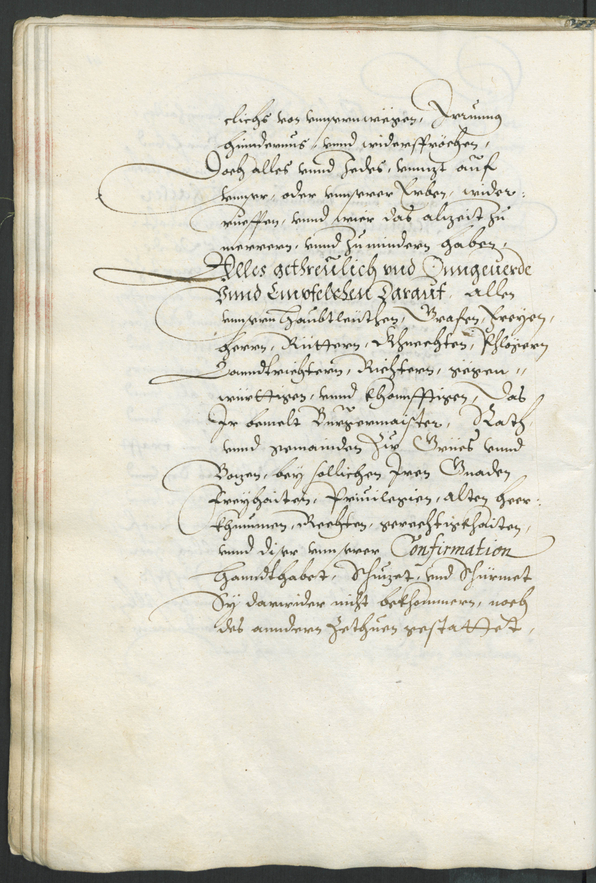 clichs von vnnsernwegen, Irrung
hinndernus, vnnd widersprechen,
Doch alles vnnd Jedes, vnnzt auf
vnnser, oder vnnserer Erben, wider:
rueffen, vnnd wier das alzeit zu
merern, vnnd zu mindern haben,
Alles gethreülich vnd Onngeuerde
Vnnd Empfelchen Darauf, allen
vnnsern Haubtleüthen, Grafen, Freyen,
Herrn, Rüttern, Khnechten, Phlegern
Lanndtrichtern, Richtern, gegen,,
württigen, vnnd khonnfftigen, Das
Ir bemelt Burgermaister, Rath
vnnd gemainden Zu Gries vnnd
Bozen, bey sollichen Iren Gnaden
Freyhaiten, Priuilegien, alten Heer:
khumen, Rechten, gerechtigkhaiten,
vnnd diser vnnserer Confirmation
Hanndthabet, Schüzet, vnd Schürmet
Sy darwider nicht bekhommern, noch
des anndern Zethuen gestattet,